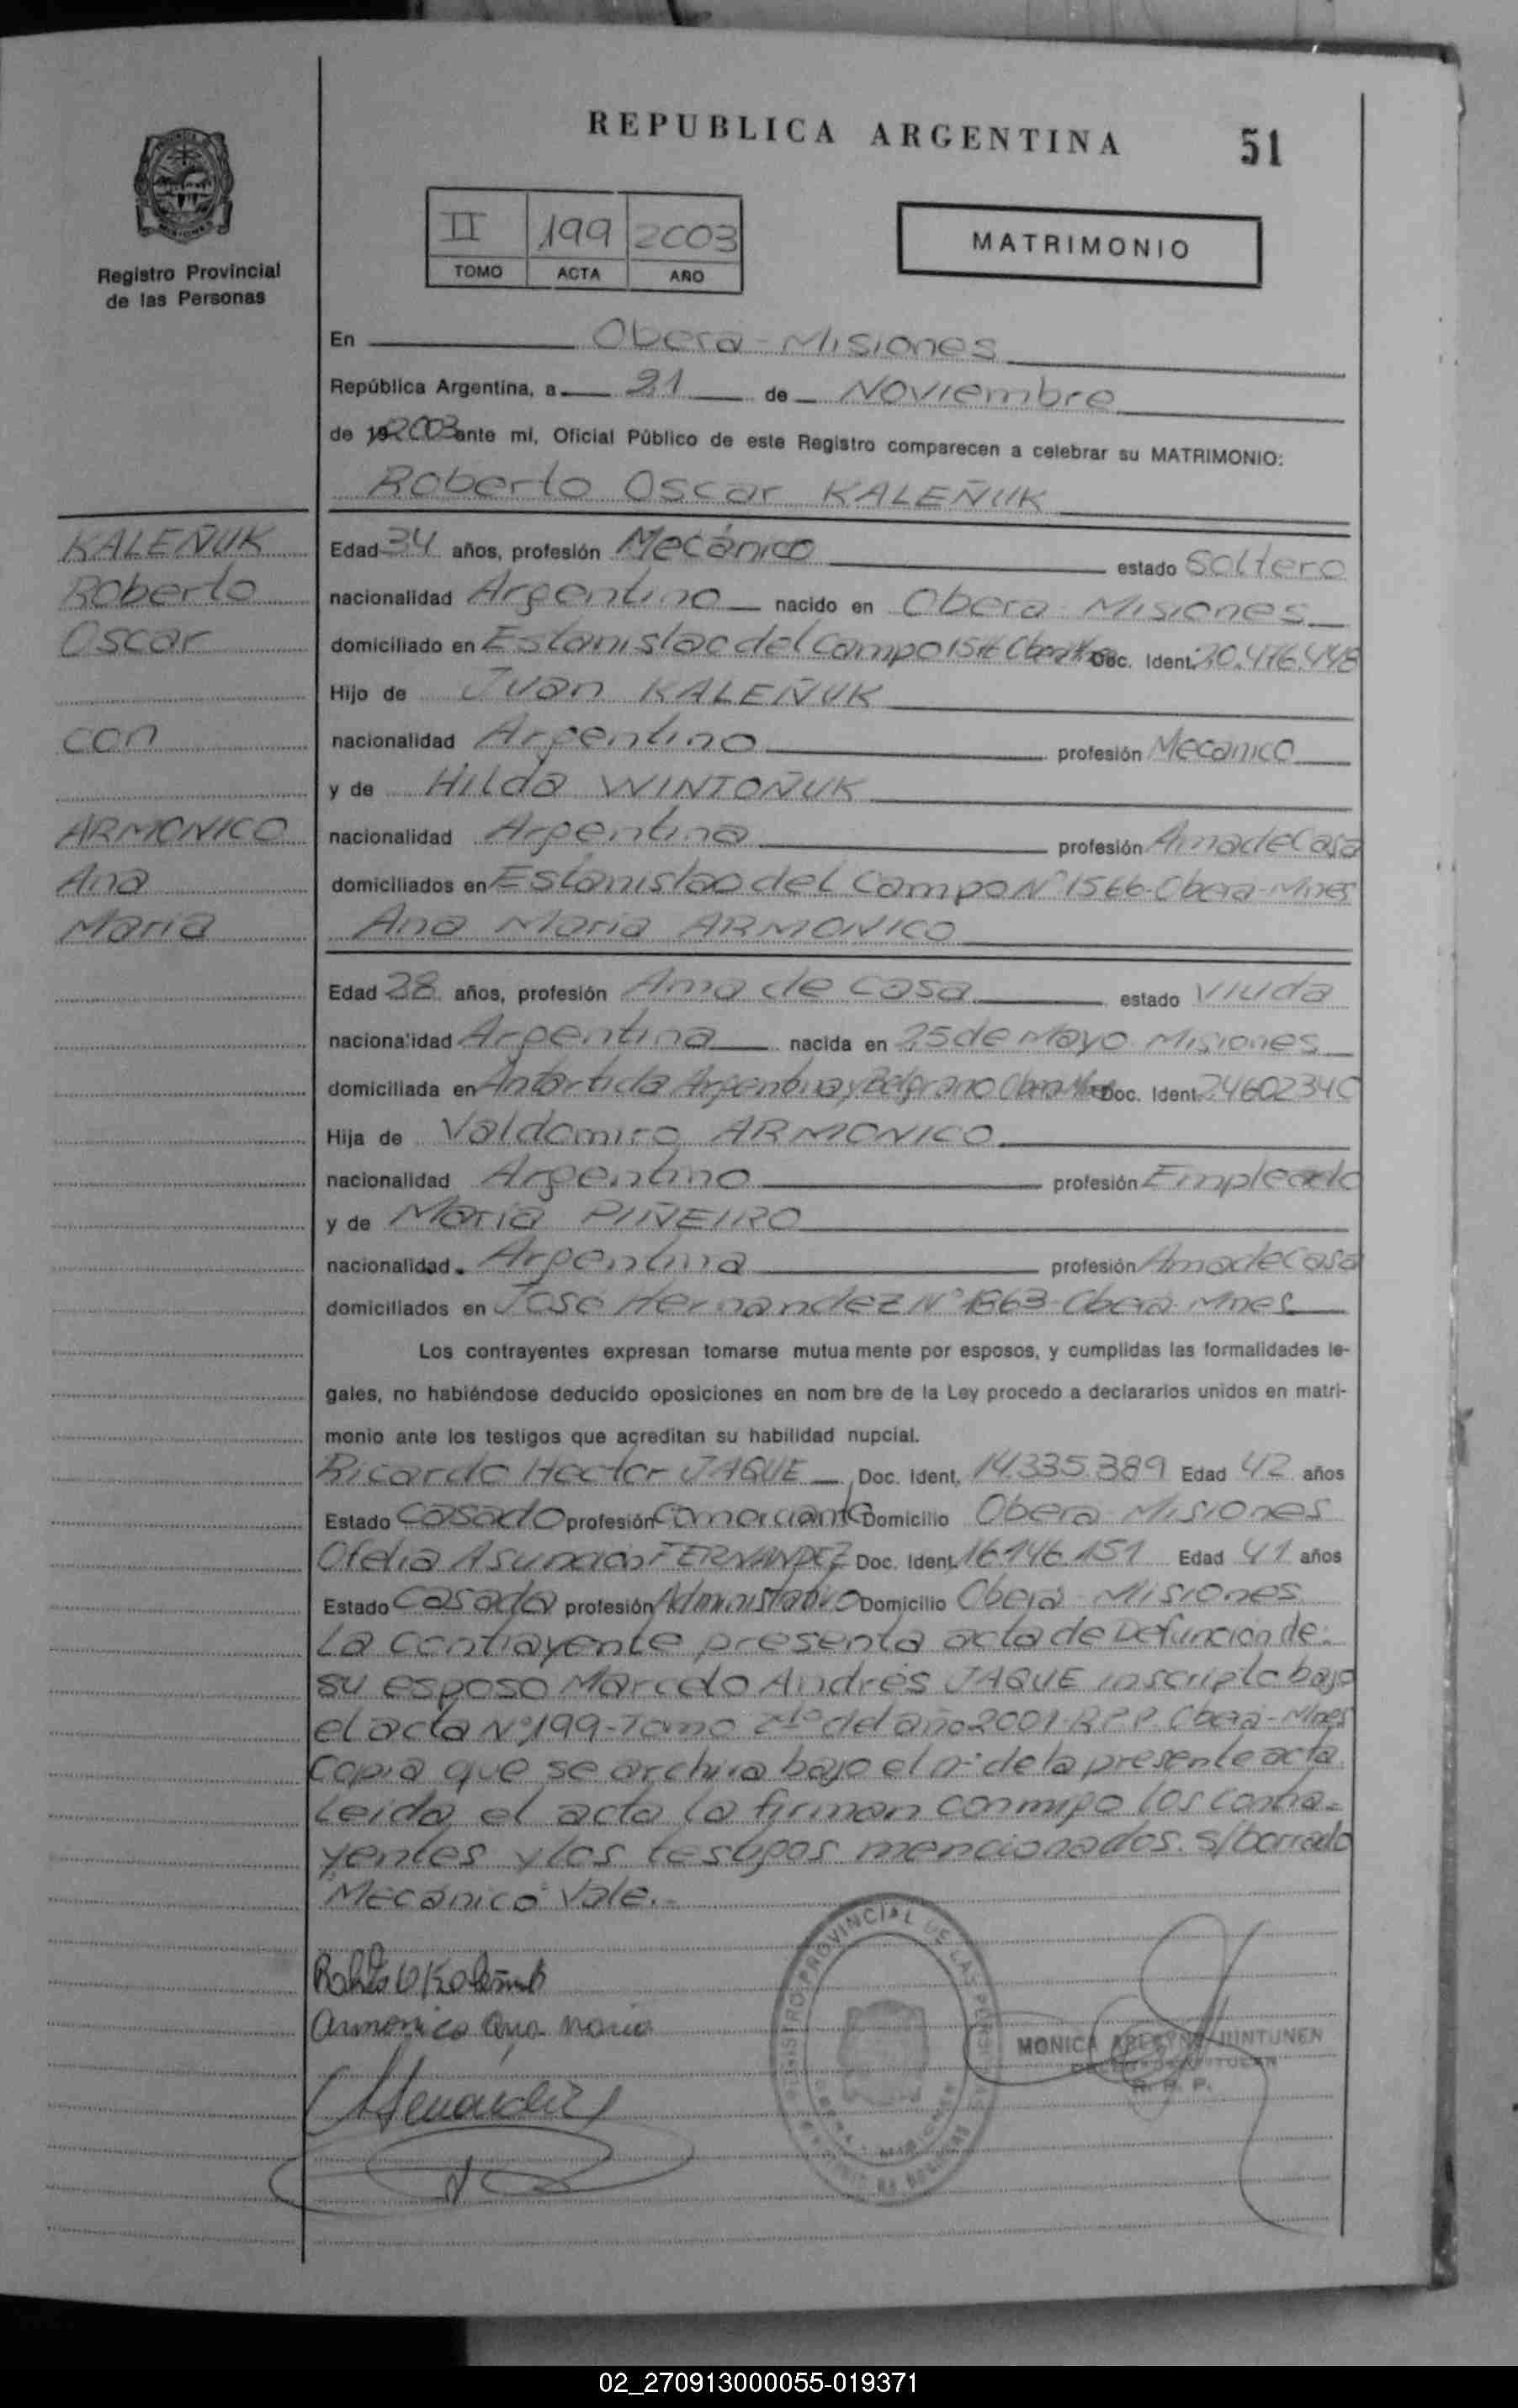 REPUBLICA ARGENTINA
51
II 199 2003
TOMO ACTA AÑO
MATRIMONIO
Registro Provincial
de las Personas
En Obera - Misiones
República Argentina, a 21 de Noviembre
de 192003 ante mí, Oficial Público de este Registro comparecen a celebrar su MATRIMONIO:
Roberto Oscar KALEÑUK
KALEÑUK
Roberto
Oscar
con
ARMONICO
Ana
Maria
Edad 34 años, profesión Mecánico estado Soltero
nacionalidad Argentino nacido en Obera Misiones
domiciliado en Estanislao del Campo Doc. Ident. 20.476.448
Hijo de Juan KALEÑUK
nacionalidad Argentino profesión Mecanico
y de Hilda WINTOÑUK
nacionalidad Argentina profesión Ama de Casa
domiciliados en Estanislao del Campo Nº 1566-Obera-Mnes
Ana Maria ARMONICO
Edad 28 años, profesión Ama de Casa estado Viuda
nacionalidad Argentina nacida en 25 de Mayo Misiones
domiciliada en Antartida Argentina y Belgrano Obera Mnes Doc. Ident. 24602340
Hija de Valdomiro ARMONICO
nacionalidad Argentino profesión Empleado
y de Maria PIÑEIRO
nacionalidad. Argentina profesión Ama de Casa
domiciliados en José Hernandez Nº 1863-Oberá-Mnes
Los contrayentes expresan tomarse mutua mente por esposos, y cumplidas las formalidades le-
gales, no habiéndose deducido oposiciones en nom bre de la Ley procedo a declararlos unidos en matri-
monio ante los testigos que acreditan su habilidad nupcial.
Ricardo Hector JAQUE Doc. Ident. 14.335.389 Edad 42 años
Estado Casado profesión Comerciante Domicilio Obera-Misiones
Ofelia Asunción FERNANDEZ Doc. Ident. 16.146.151 Edad 41 años
Estado Casada profesión Administrativo Domicilio Oberá-Misiones
La contrayente presenta acta de Defunción de
su esposo Marcelo Andrés JAQUE inscripto bajo
el acta Nº199-Tomo 2do del año 2001-R.P.P. Oberá-Mnes
Copia que se archiva bajo el nº de la presente acta
Leida el acta la firman conmigo los contra-
yentes y los testigos mencionados. s/borrado
Mecánico Vale.-
Armonico Ana Maria
REGISTRO PROVINCIAL DE LAS PERSONAS
MONICA JUNTUNEN
R. P. P.
02_270913000055-019371